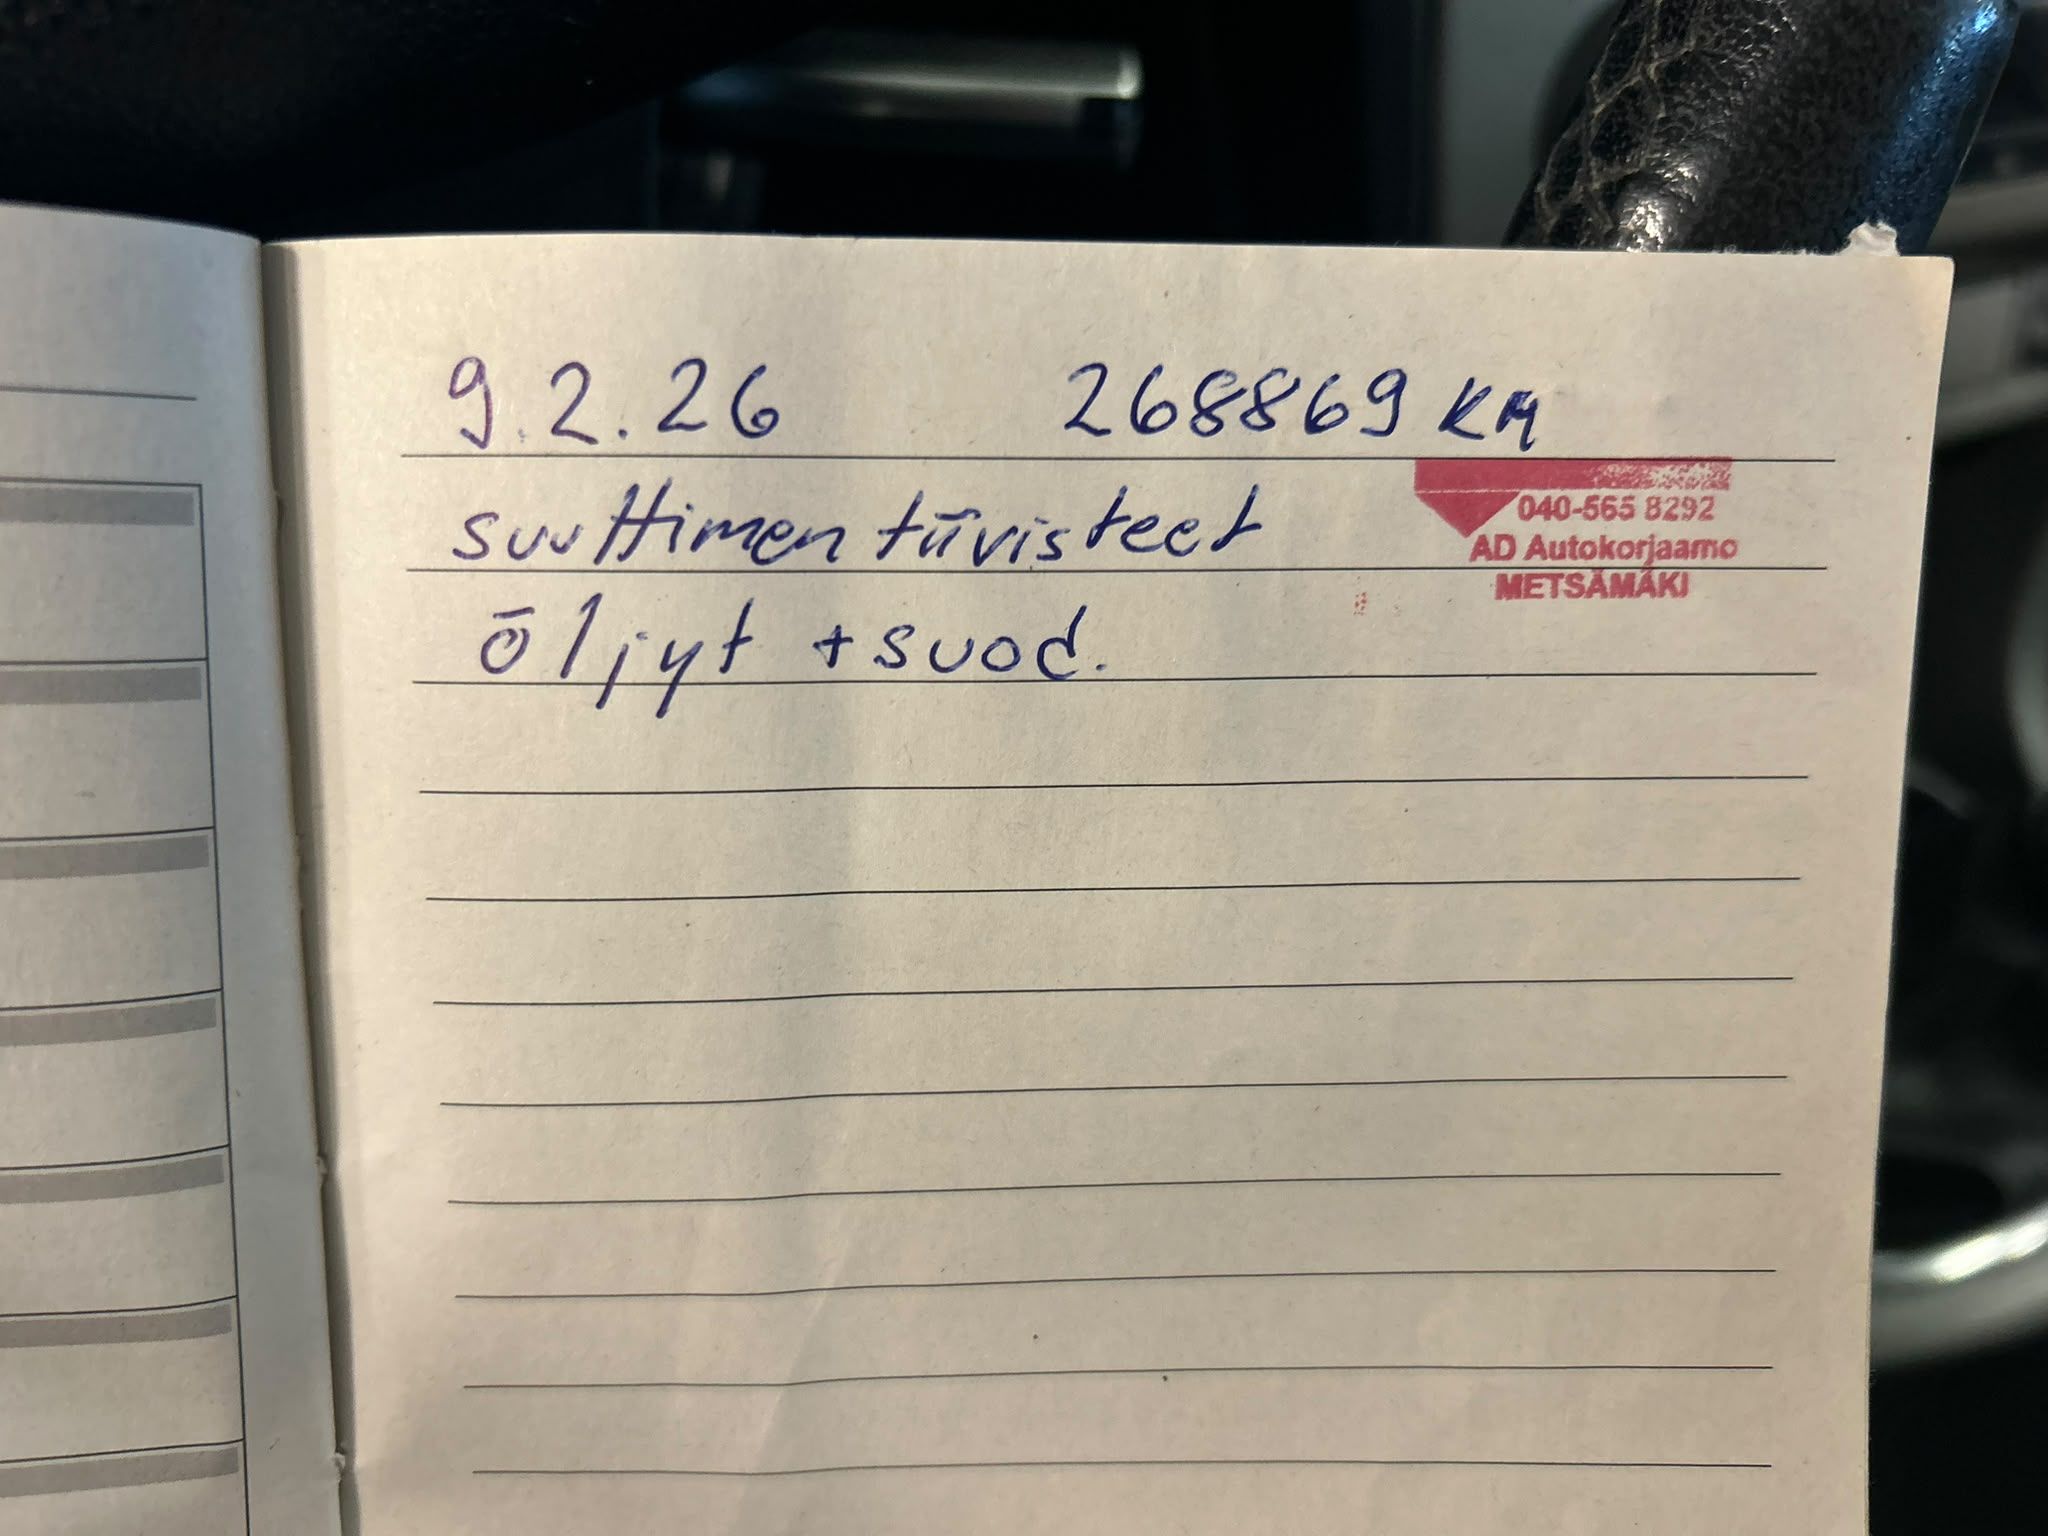 9.2.26 268869 km
suuttimen tiivisteet
040-565 8292
AD Autokorjaamo
METSÄMÄKI
öljyt + suod.